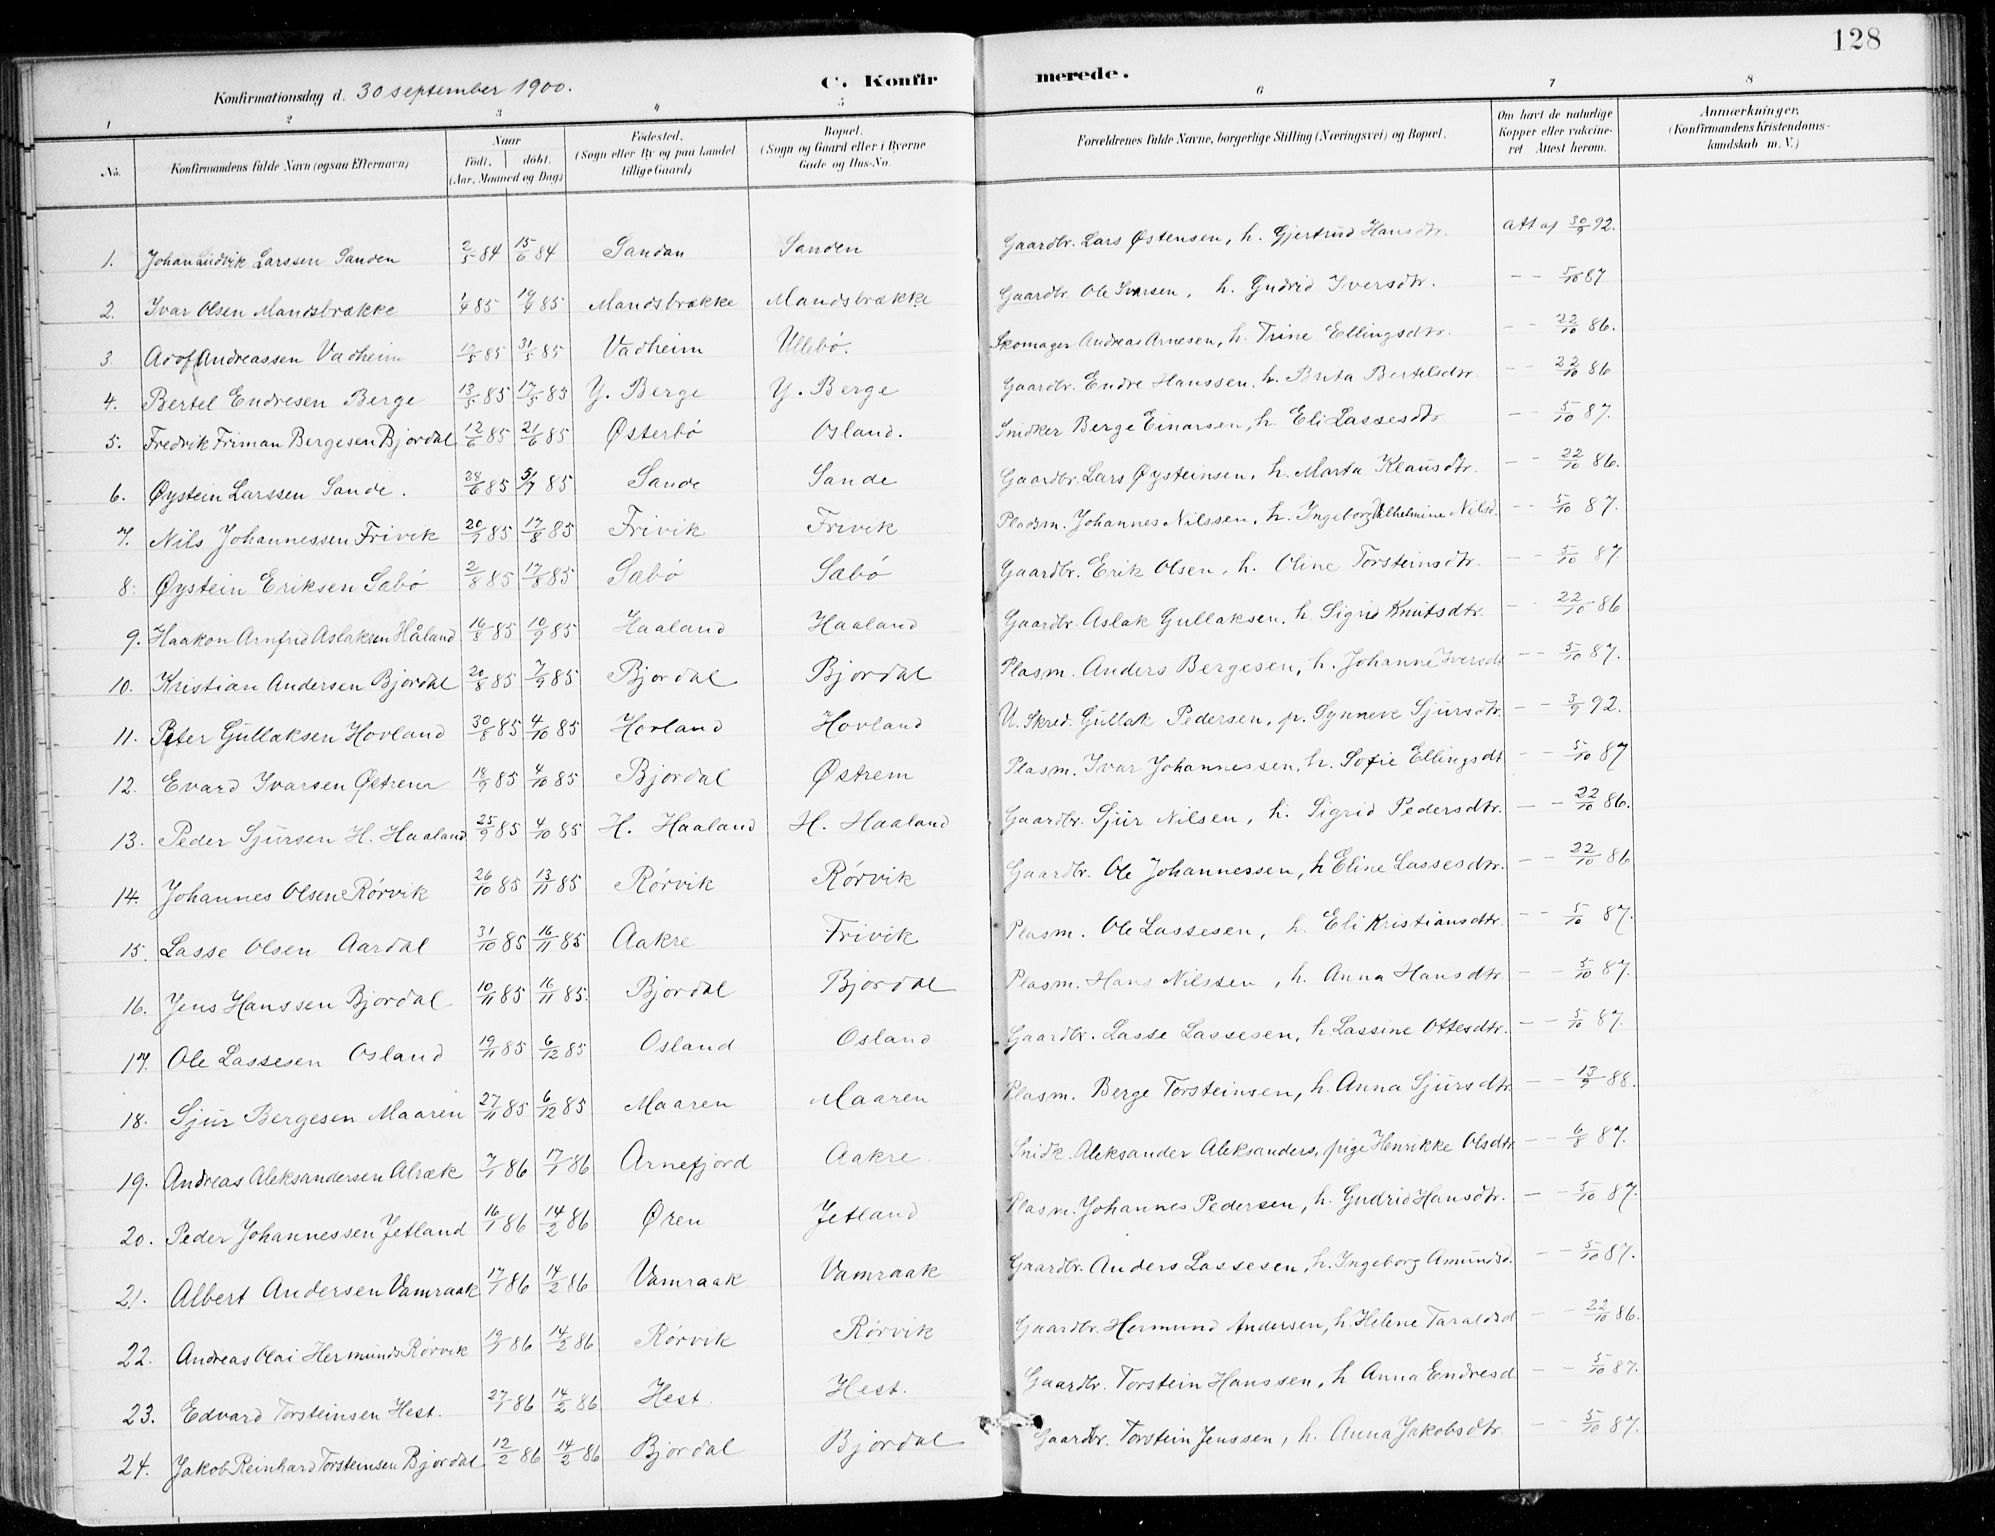 128
C. Konfirmerede.
Konfirmationsdag d. 30 september 1900.
1 2 3 4 5 6 7 8
No. Konfirmandens fulde Navn (ogsaa Efternavn) Naar født. døbt. (Aar, Maaned og Dag) Fødested. (Sogn eller By og paa Landet tillige Gaard) Bopæl. (Sogn og Gaard eller i Byerne Gade og Hus-No. Forældrenes fulde Navne, borgerlige Stilling (Næringsvei) og Bopæl. Om havt de naturlige Kopper eller vakcineret Attest herom. Anmærkninger, (Konfirmandens Kristendomskundskab m.V.)
1. Johan Ludvik Larssen Sanden 2/5 84 15/6 84 Sandan Sanden Gaardbr. Lars Østensen, h. Gjertrud Hansdtr. att af 30/9 92.
2. Ivar Olsen Mandsbrække 1/4 85 19/4 85 Mandsbrække Mandsbrække Gaardbr. Ole Ivarsen, h. Gudrid Iversdtr. — — 5/10 87
3 Andreassen Vadheim 12/5 85 31/5 85 Vadheim Ullebø. Skomager Andreas Arnesen, h. Trine Ellingsdtr. — — 22/10 86.
4. Bertel Endresen Berge 13/5 85 17/5 85 Y. Berge Y. Berge Gaardbr. Endre Hanssen, h. Brita Bertelsdtr. — — 22/10 86
5. Fredrik Friman Bergesen Bjordal 12/6 85 21/6 85 Østerbø Osland. Snidker Berge Einarsen, h. Eli Lassesdtr. — — 5/10 87.
6. Øystein Larssen Sande. 24/6 85 5/7 85 Sande Sande Gaardbr. Lars Øysteinsen, h. Marta Klausdtr. — — 22/10 86.
7. Nils Johannessen Frivik 20/7 85 17/8 85 Frivik Frivik Pladsm. Johannes Nilssen, h. Ingeborg Vilhelmine Nilsd. — — 5/10 87.
8. Øystein Eriksen Sabø 2/8 85 17/8 85 Sabø Sabø Gaardbr. Erik Olsen, h. Oline Torsteinsdtr. — — 5/10 87.
9. Haakon Arnfrid Aslaksen Håland 16/8 85 10/9 85 Haaland Haaland Gaardbr. Aslak Gullaksen, h. Sigrid Knutsdtr. — — 22/10 86
10. Kristian Andersen Bjordal 20/8 85 7/9 85 Bjordal Bjordal Plasm. Anders Bergesen, h. Johanne Iversdt — — 5/10 87.
11. Peter Gullaksen Hovland 30/8 85 4/10 85 Hovland Hovland U. Skred. Gullak Pedersen, p. Synneve Sjursdtr. — — 3/9 92.
12. Evard Ivarsen Østrem 18/9 85 4/10 85 Bjordal Østrem Plasm. Ivar Johannessen, h. Sofie Ellingsdt — — 5/10 87
13. Peder Sjursen H. Haaland 25/9 85 4/10 85 H. Haaland H. Haaland Gaardbr. Sjur Nilsen, h. Sigrid Pedersdtr. — — 22/10 86.
14. Johannes Olsen Rørvik 26/10 85 13/11 85 Rørvik Rørvik Gaardbr. Ole Johannessen, h Eline Lassesdtr. — — 22/10 86
15. Lasse Olsen Aardal 31/10 85 16/11 85 Aakre Frivik Plasm. Ole Lassesen, h. Eli Kristiansdtr. — — 5/10 87.
16. Jens Hanssen Bjordal 10/11 85 16/11 85. Bjordal Bjordal Plasm. Hans Nilssen, h. Anna Hansdtr — — 5/10 87.
17. Ole Lassesen Osland 19/11 85 6/12 85 Osland Osland Gaardbr. Lasse Lassesen, h. Lassine Ottesdtr. — — 5/10 87.
18. Sjur Bergesen Maaren 27/11 85 6/12 85 Maaren Maaren Plasm. Berge Torsteinsen, h. Anna Sjursdtr — — 13/9 88.
19. Andreas Aleksandersen Alræk 7/1 86 17/1 86 Arnefjord Aakre. Snidk. Aleksander Aleksanders, pige Henrikke Olsdtr — — 6/8 87.
20. Peder Johannessen Jetland 16/1 86 14/2 86 Øren Jetland Plasm. Johannes Pedersen, h. Gudrid Hansdtr. — — 5/10 87.
21. Albert Andersen Vamraak 17/1 86 14/2 86 Vamraak Vamraak Gaardbr. Anders Lassesen, h. Ingeborg Amundsd. — — 5/10 87.
22. Andreas Olai Hermunds Rørvik 19/1 86 14/2 86 Rørvik Rørvik Gaardbr. Hermund Andersen, h. Helene Taraldsd — — 22/10 86.
23. Edvard Torsteinsen Hest. 27/1 86 14/2 86 Hest Hest. Gaardbr. Torstein Hanssen, h Anna Endresd — — 5/10 87.
24. Jakob Reinhard Torsteinsen Bjordal 12/2 86 14/2 86 Bjordal Bjordal Gaardbr. Torstein Jenssen, h. Anna Jakobsdtr. — — 5/10 87.